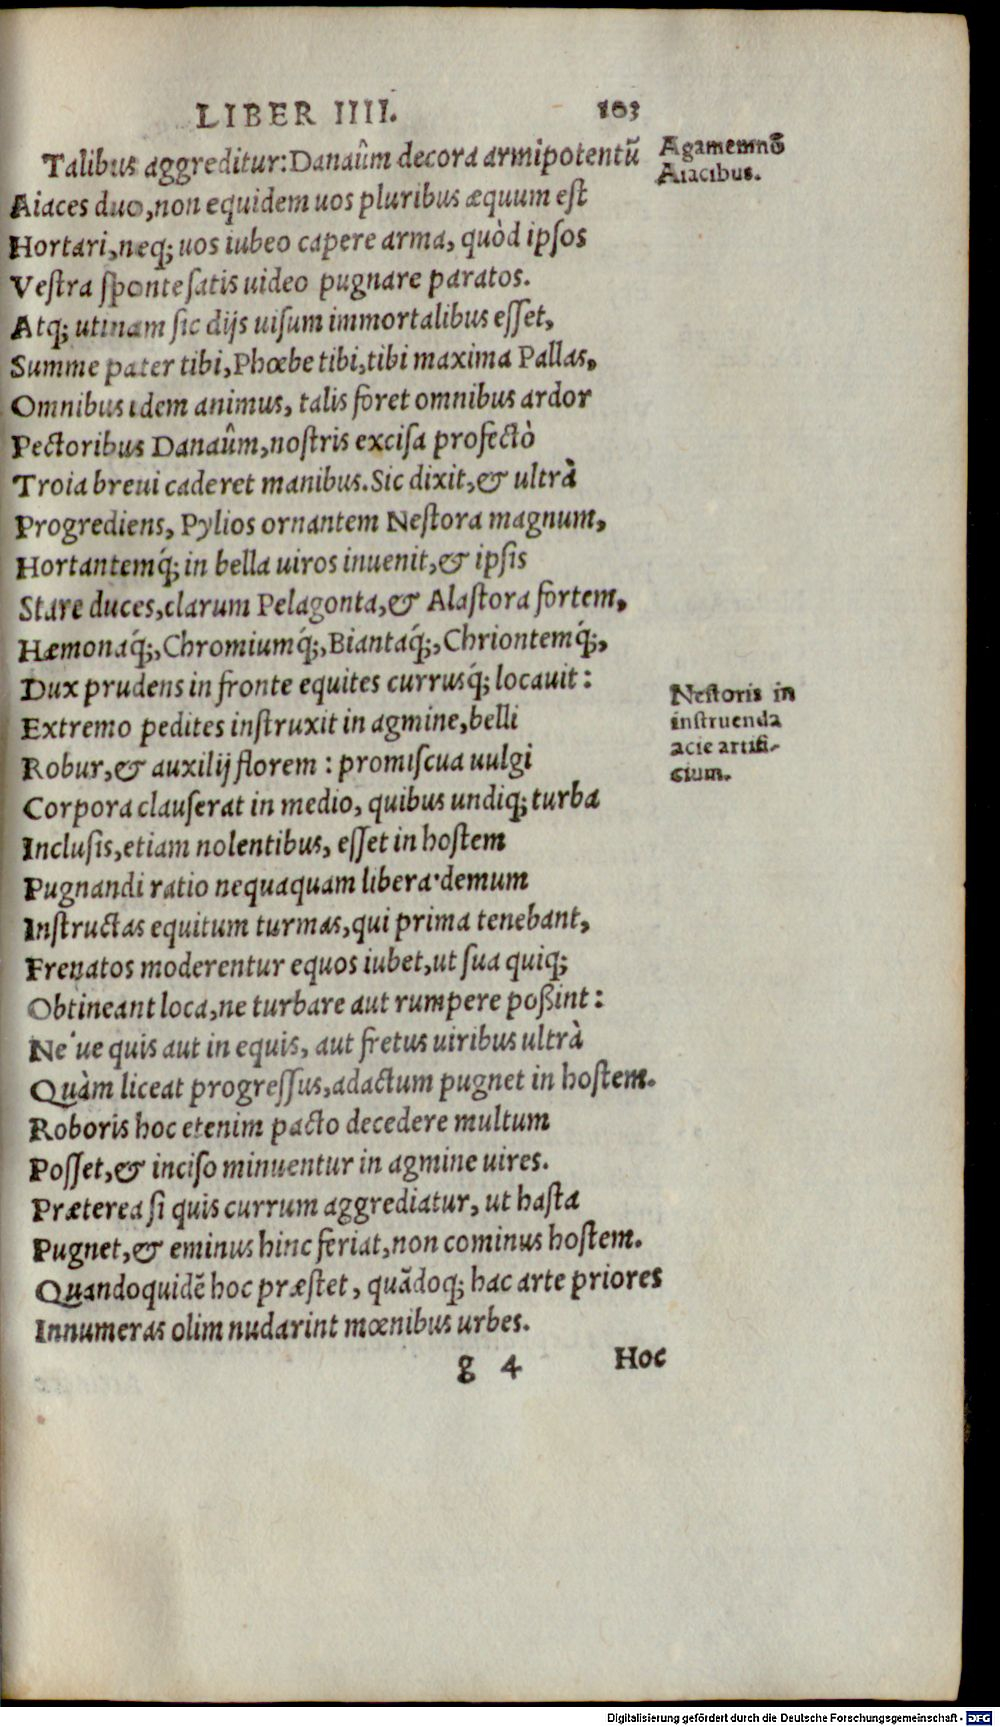 LIBER IIII. 103
Talibus aggreditur: Danaûm decora armipotentũ
Agamemnõ
Aiacibus.
Aiaces duo, non equidem uos pluribus æquum est
Hortari, neq; uos iubeo capere arma, quòd ipsos
Vestra sponte satis uideo pugnare paratos.
Atq; utinam sic dijs uisum immortalibus esset,
Summe pater tibi, Phœbe tibi, tibi maxima Pallas,
Omnibus idem animus, talis foret omnibus ardor
Pectoribus Danaûm, nostris excisa profectò
Troia breui caderet manibus. Sic dixit, & ultrà
Progrediens, Pylios ornantem Nestora magnum,
Hortantemq́; in bella uiros inuenit, & ipsis
Stare duces, clarum Pelagonta, & Alastora fortem,
Hæmonaq́;, Chromiumq́;, Biantaq́;, Chriontemq́;,
Dux prudens in fronte equites currusq́; locauit:
Nestoris in
instruenda
acie artifi-
cium.
Extremo pedites instruxit in agmine, belli
Robur, & auxilij florem: promiscua uulgi
Corpora clauserat in medio, quibus undiq; turba
Inclusis, etiam nolentibus, esset in hostem
Pugnandi ratio nequaquam libera. demum
Instructas equitum turmas, qui prima tenebant,
Frenatos moderentur equos iubet, ut sua quiq;
Obtineant loca, ne turbare aut rumpere poßint:
Ne'ue quis aut in equis, aut fretus uiribus ultrà
Quàm liceat progressus, adactum pugnet in hostem.
Roboris hoc etenim pacto decedere multum
Posset, & inciso minuentur in agmine uires.
Præterea si quis currum aggrediatur, ut hasta
Pugnet, & eminus hinc feriat, non cominus hostem.
Quandoquidē hoc præstet, quãdoq; hac arte priores
Innumeras olim nudarint mœnibus urbes.
g 4 Hoc
Digitalisierung gefördert durch die Deutsche Forschungsgemeinschaft - DFG